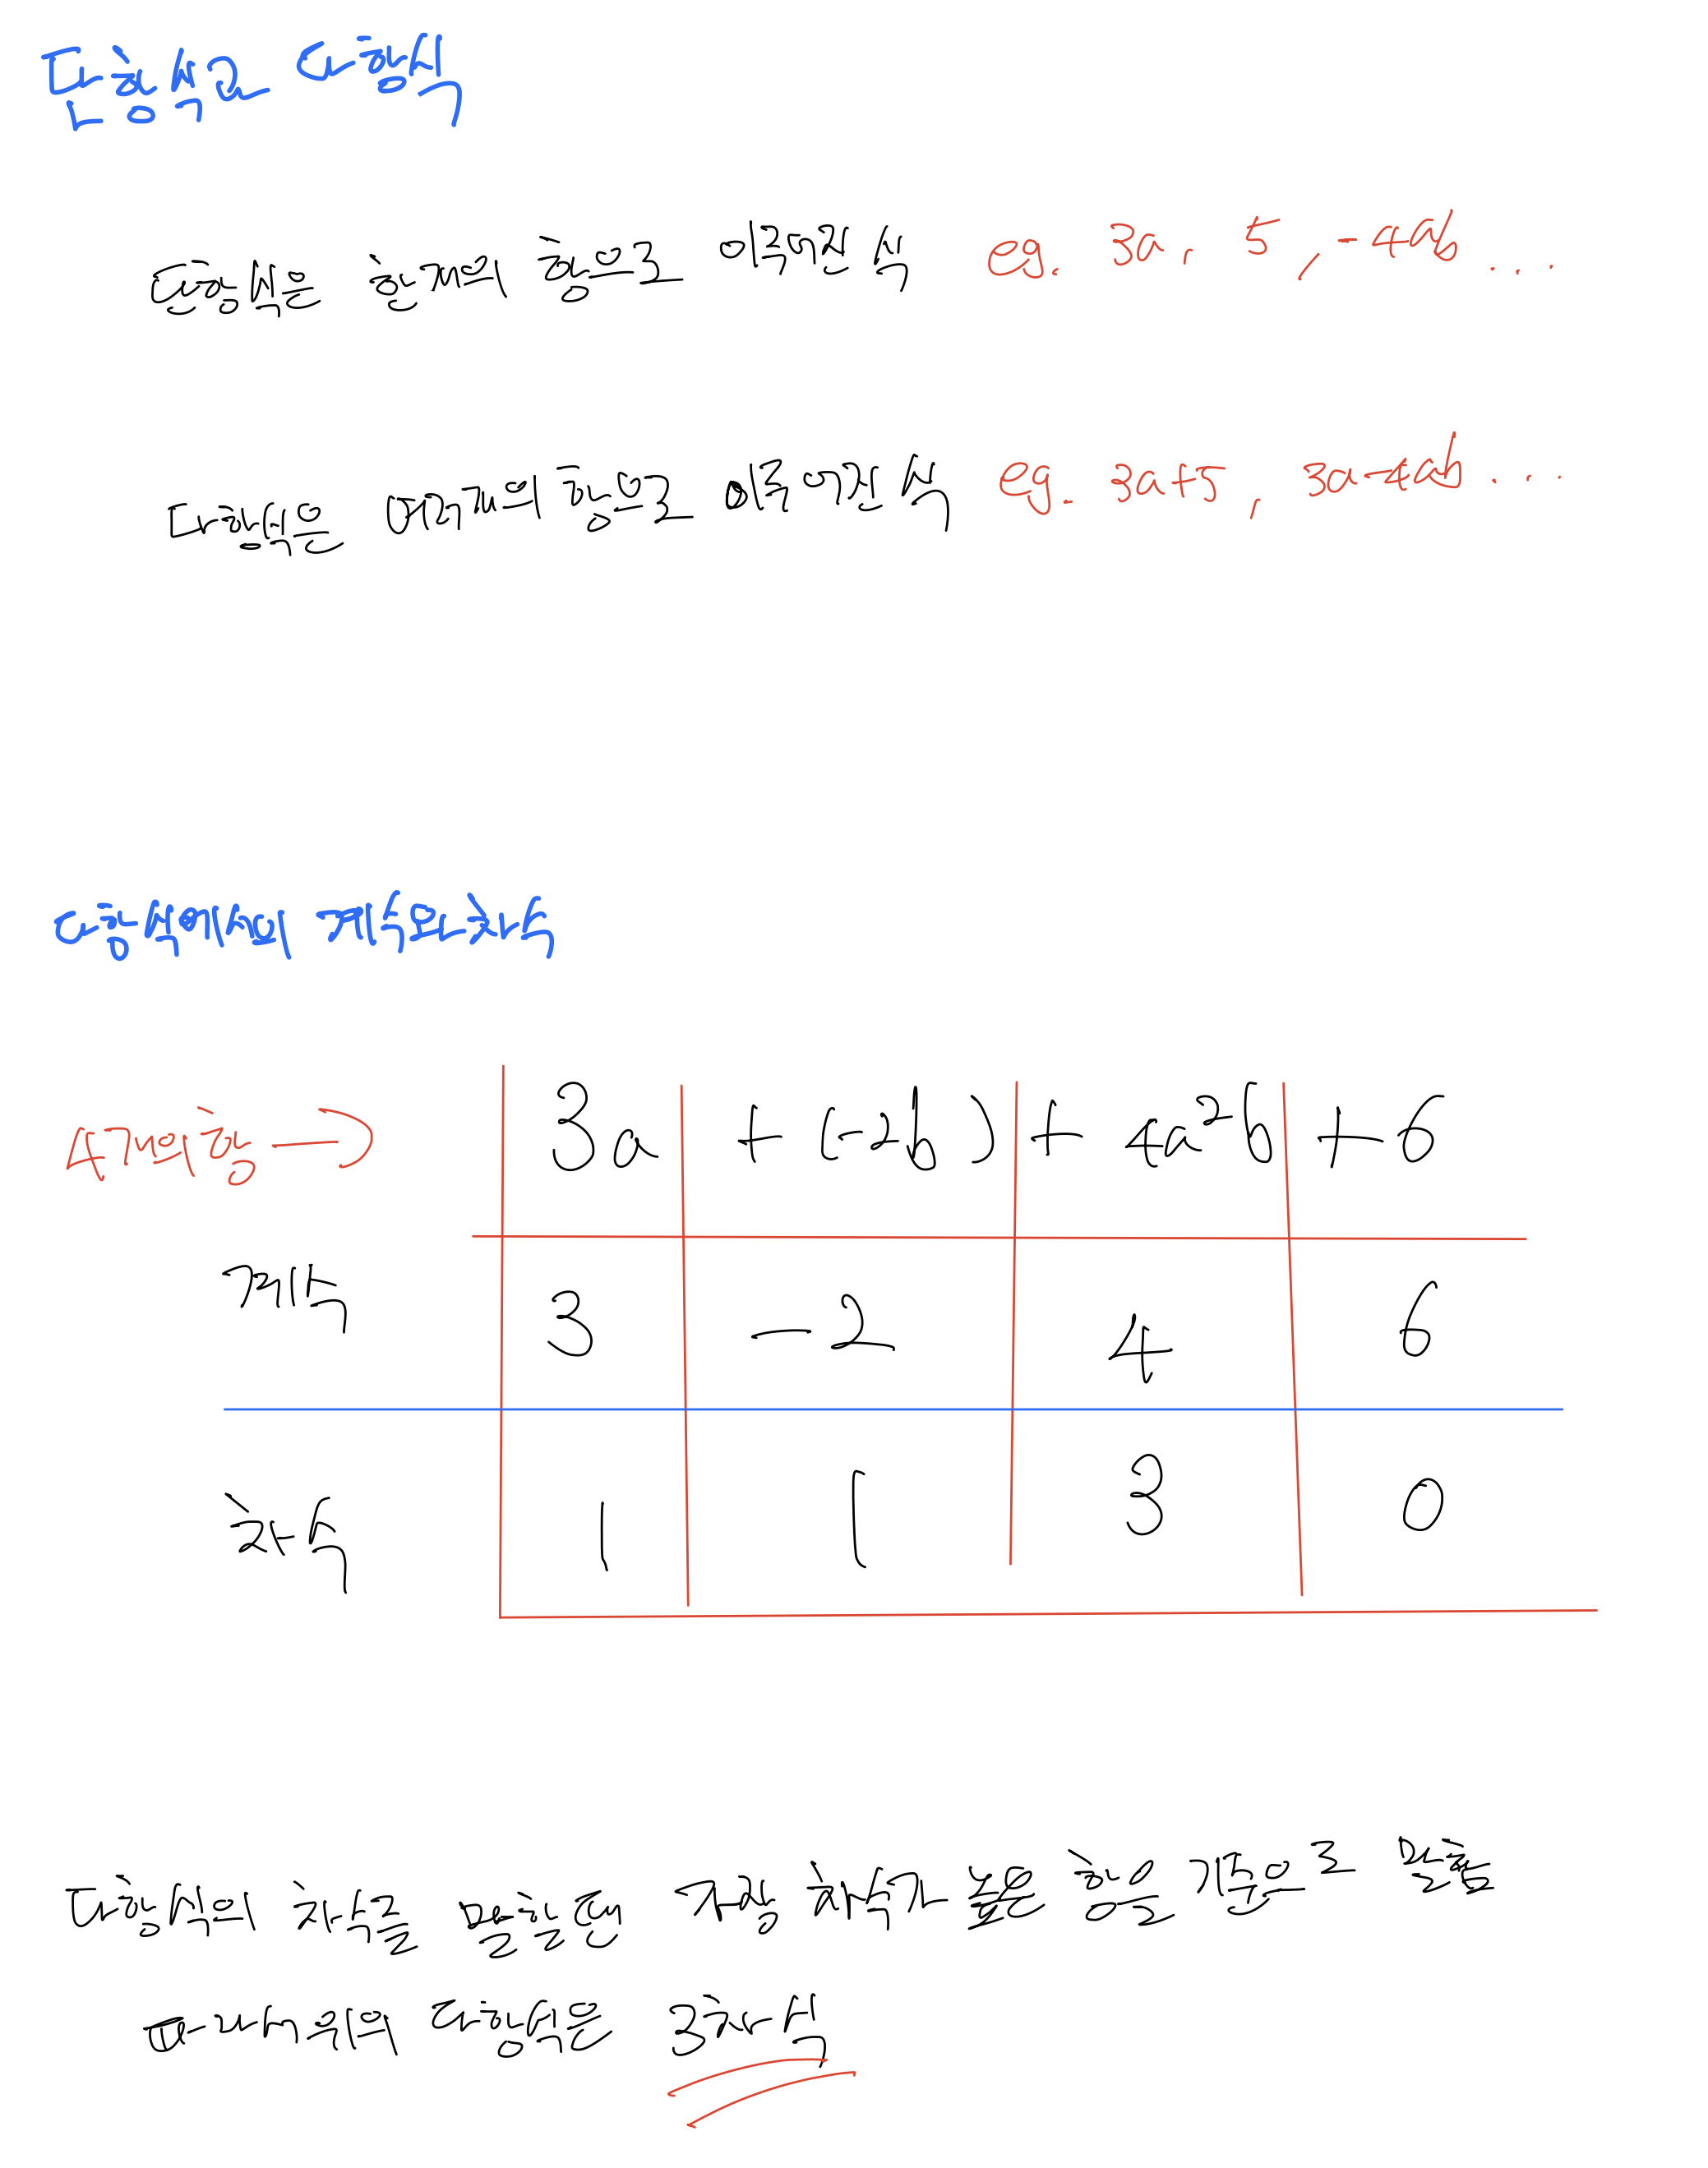 단항식과 다항식
단항식은 한개의 항으로 이루어진 식 eg. 3a, 5, -4ab ...
다항식은 여러개의 항으로 이루어진 식 eg. 3a+5, 3a-4ab ...
다항식에서의 계수와 차수
4개의 항 → 3a + (-2b) + 4a²b + 6
계수 3 -2 4 6
차수 1 1 3 0
다항식의 차수를 말할땐 가장 차수가 높은 항을 기준으로 말함
따라서 위의 다항식은 3차식